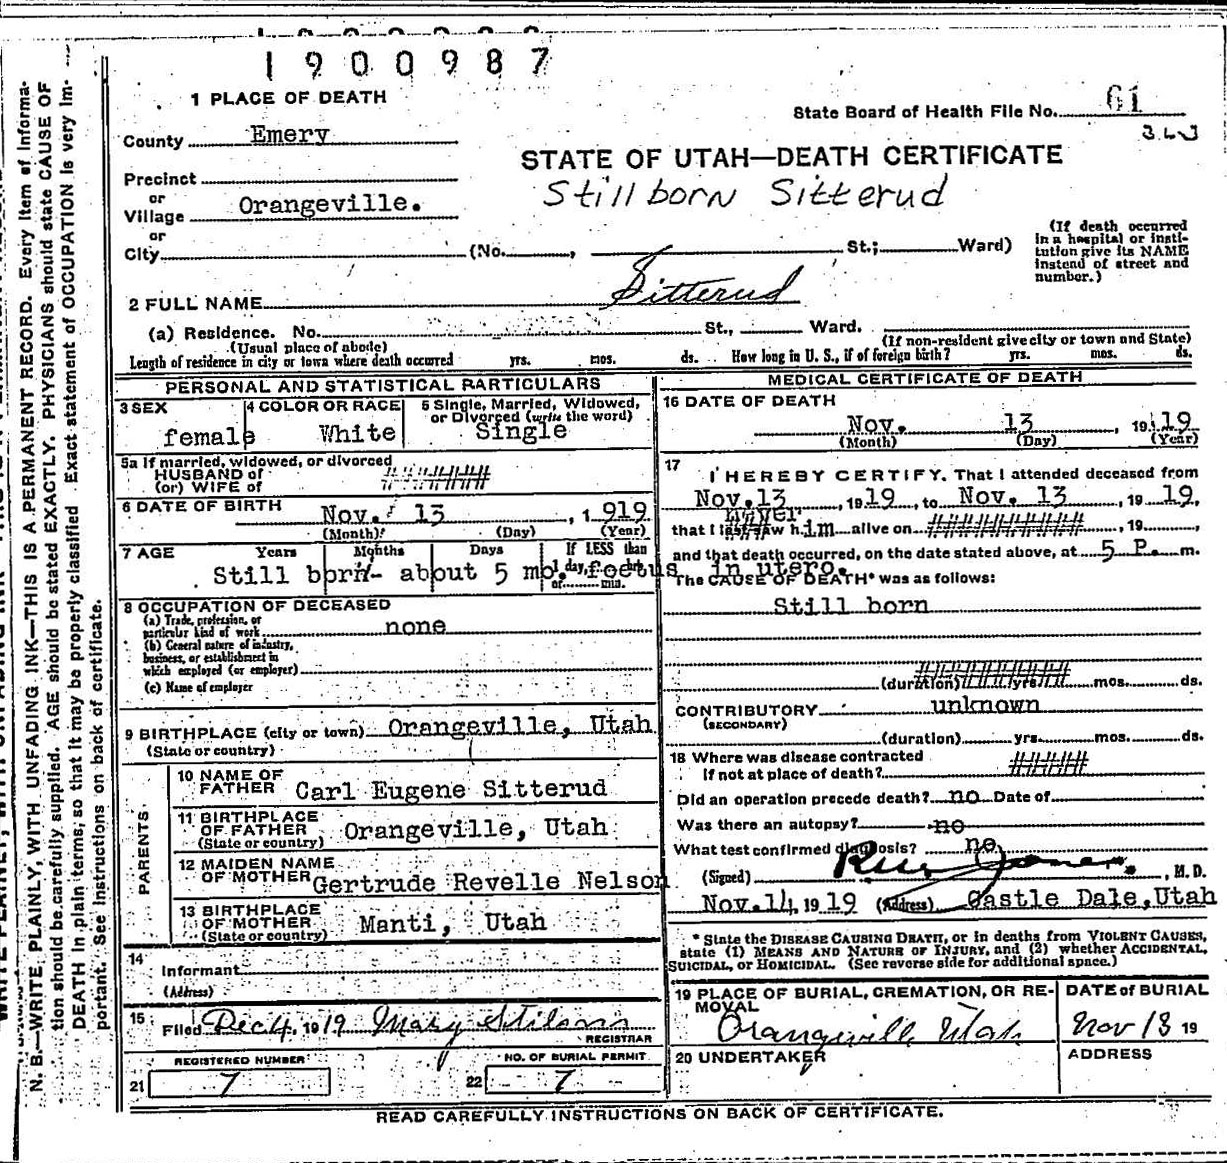 1900987
1 PLACE OF DEATH
State Board of Health File No. 61
County Emery
STATE OF UTAH—DEATH CERTIFICATE
Precinct
or
Village Orangeville.
Stillborn Sitterud
or
City (No. , St.; Ward)
(If death occurred
in a hospital or insti-
tution give its NAME
instead of street and
number.)
2 FULL NAME Sitterud
(a) Residence. No. St., Ward.
(Usual place of abode)
(If non-resident give city or town and State)
Length of residence in city or town where death occurred yrs. mos. ds. How long in U. S., if of foreign birth? yrs. mos. ds.
PERSONAL AND STATISTICAL PARTICULARS
3 SEX
female
4 COLOR OR RACE
White
5 Single, Married, Widowed,
or Divorced (write the word)
Single
5a If married, widowed, or divorced
HUSBAND of
(or) WIFE of #######
6 DATE OF BIRTH Nov. 13 , 1 919
(Month) (Day) (Year)
7 AGE Years Months Days If LESS than
Still born- about 5 mo. foetus in utero.
8 OCCUPATION OF DECEASED
(a) Trade, profession, or
particular kind of work none
(b) General nature of industry,
business, or establishment in
which employed (or employer)
(c) Name of employer
9 BIRTHPLACE (city or town) Orangeville, Utah
(State or country)
PARENTS
10 NAME OF
FATHER Carl Eugene Sitterud
11 BIRTHPLACE
OF FATHER Orangeville, Utah
(State or country)
12 MAIDEN NAME
OF MOTHER Gertrude Revelle Nelson
13 BIRTHPLACE
OF MOTHER Manti, Utah
(State or country)
14
Informant
(Address)
15 Filed Dec 4, 1919 Mary Stilson
REGISTRAR
REGISTERED NUMBER
21 7
NO. OF BURIAL PERMIT
22 7
MEDICAL CERTIFICATE OF DEATH
16 DATE OF DEATH
Nov. 13 , 19 19
(Month) (Day) (Year)
17
I HEREBY CERTIFY, That I attended deceased from
Nov.13 , 19 19, to Nov. 13 , 19 19,
never
that I last saw him alive on ########## , 19
and that death occurred, on the date stated above, at 5 P. m.
The CAUSE OF DEATH* was as follows:
Still born
(duration) yrs. mos. ds.
CONTRIBUTORY unknown
(SECONDARY)
(duration) yrs. mos. ds.
18 Where was disease contracted
If not at place of death? #####
Did an operation precede death? no Date of
Was there an autopsy? no
What test confirmed diagnosis? no
(Signed) , M. D.
Nov.14, 19 19 (Address) Castle Dale, Utah
* State the DISEASE CAUSING DEATH, or in deaths from VIOLENT CAUSES,
state (1) MEANS AND NATURE OF INJURY, and (2) whether ACCIDENTAL,
SUICIDAL, OR HOMICIDAL. (See reverse side for additional space.)
19 PLACE OF BURIAL, CREMATION, OR RE-
MOVAL
Orangeville Utah
DATE of BURIAL
Nov 13 19
20 UNDERTAKER
ADDRESS
READ CAREFULLY INSTRUCTIONS ON BACK OF CERTIFICATE.
N. B.—WRITE PLAINLY, WITH UNFADING INK—THIS IS A PERMANENT RECORD. Every item of informa-
tion should be carefully supplied. AGE should be stated EXACTLY. PHYSICIANS should state CAUSE OF
DEATH in plain terms, so that it may be properly classified. Exact statement of OCCUPATION is very im-
portant. See instructions on back of certificate.